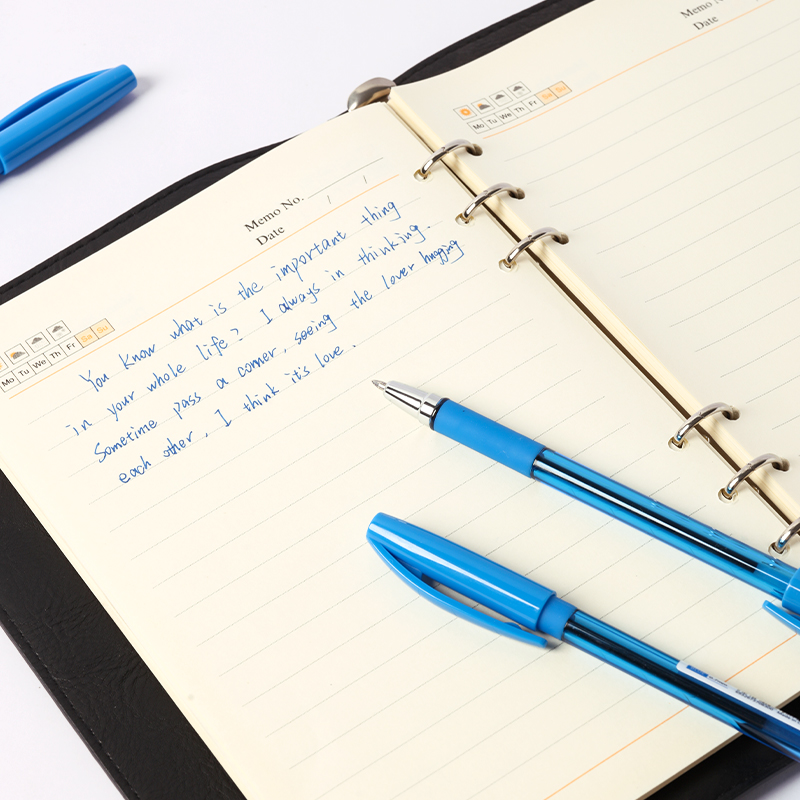 Memo No.
Date / /
Mo Tu We Th Fr Sa Su
You know what is the important thing
in your whole life? I always in thinking.
Sometime pass a corner, seeing the lover hugging
each other, I think it's love.
Date
Mo Tu We Th Fr Sa Su